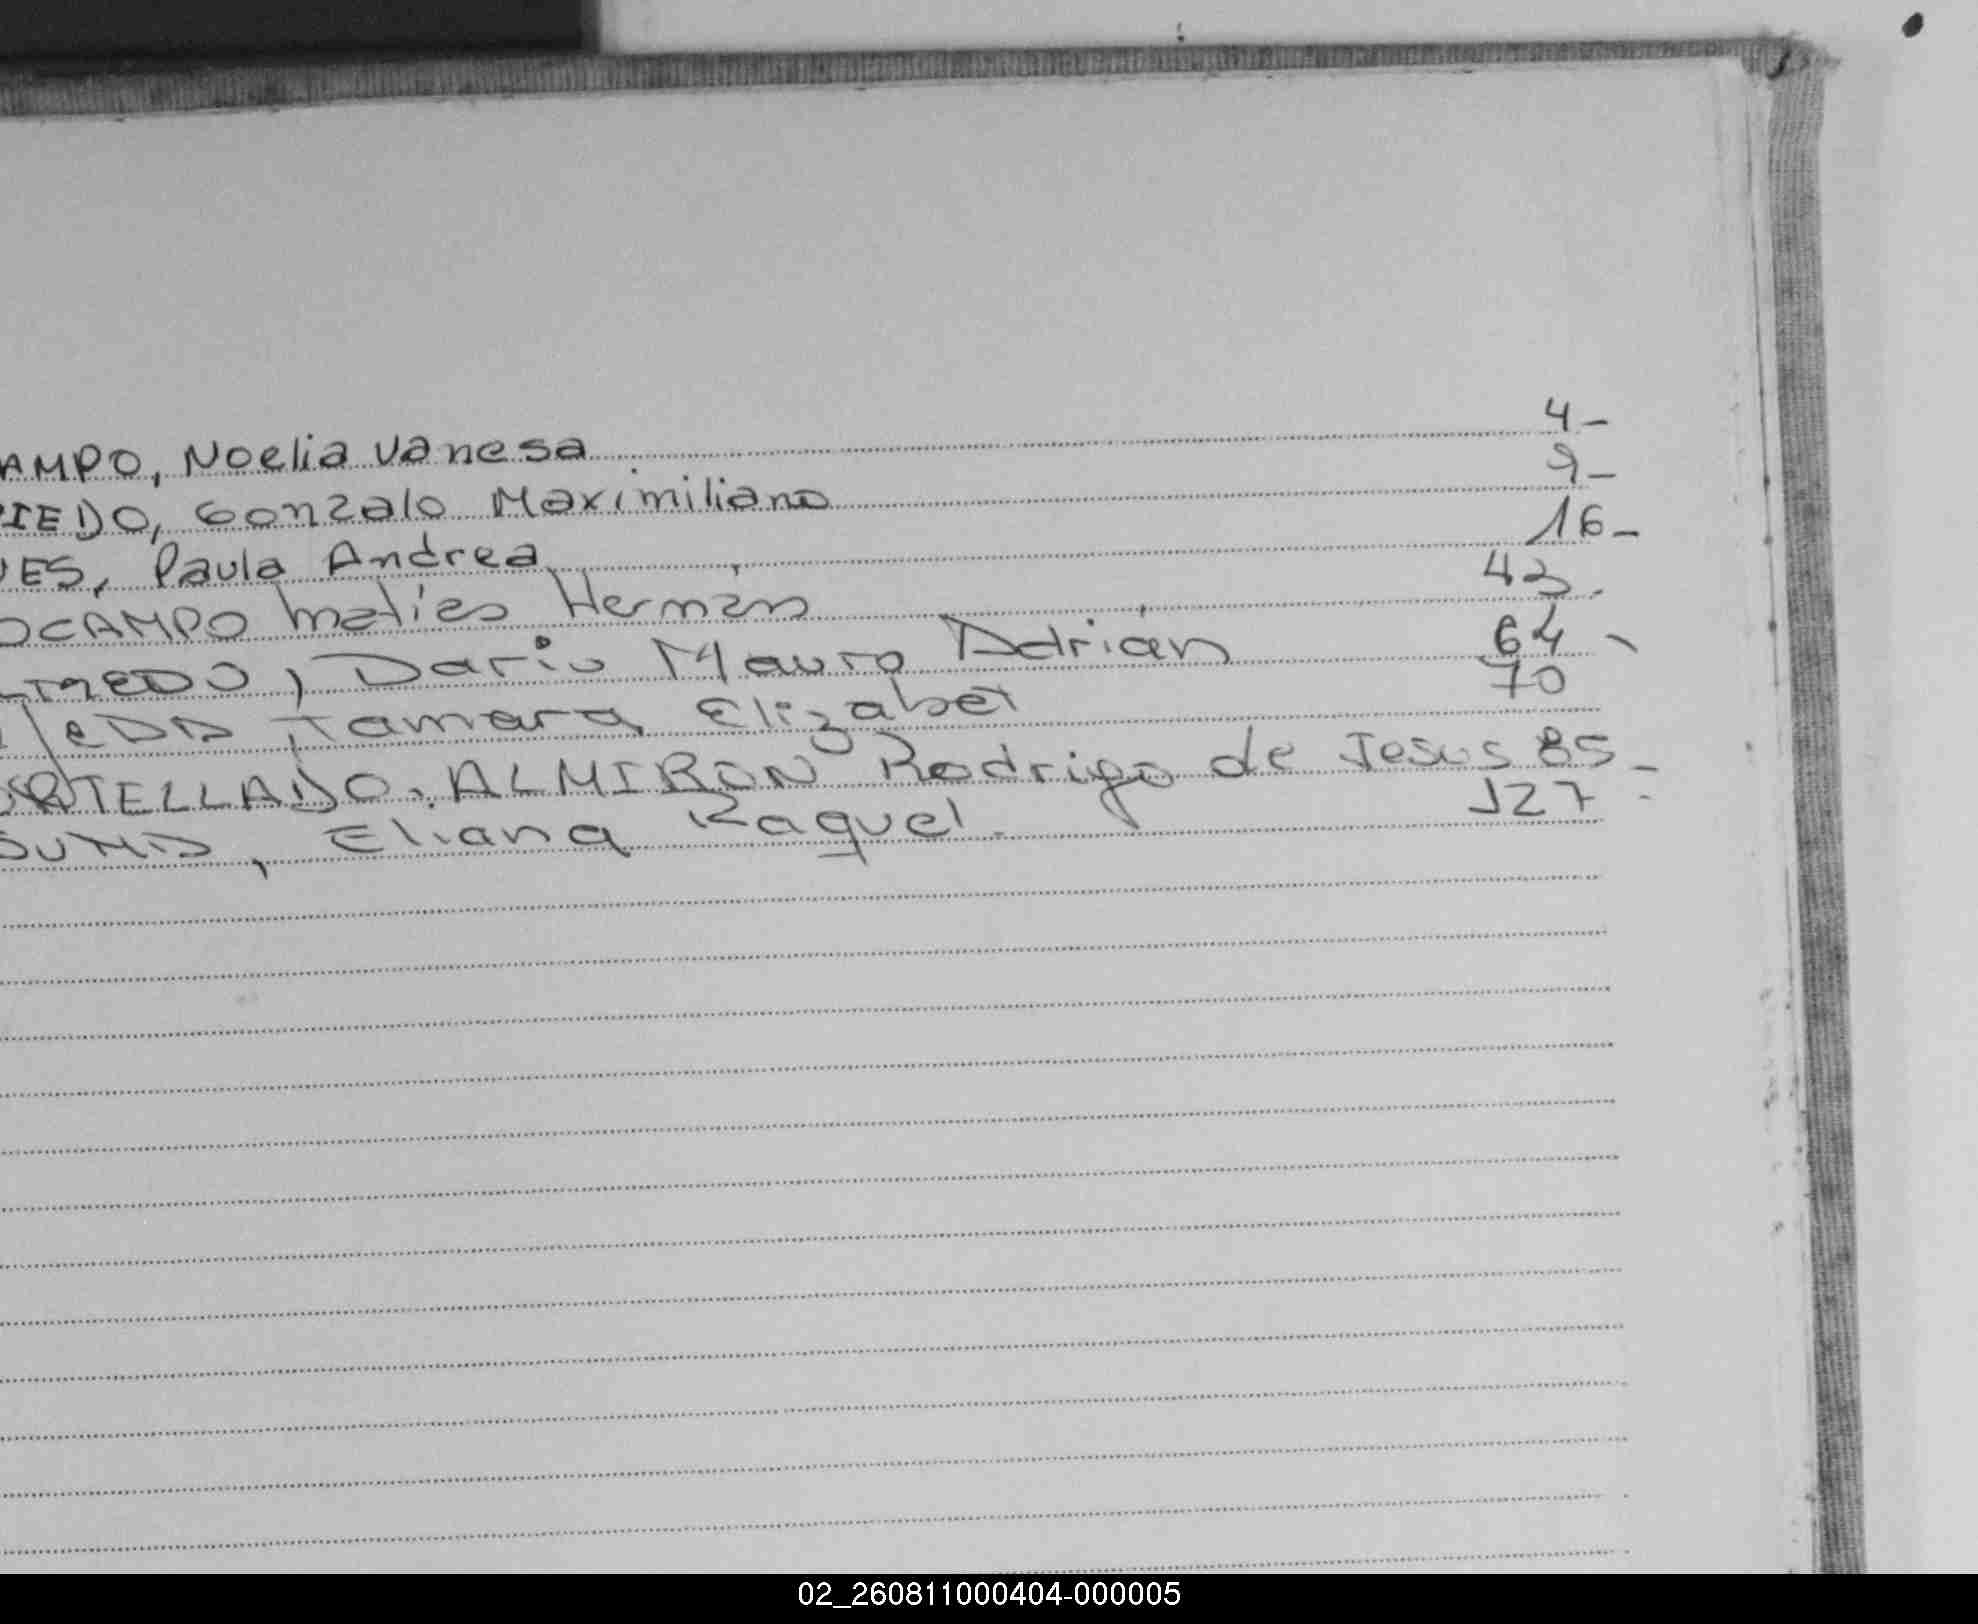 AMPO, Noelia Vanesa 4-
IEDO, Gonzalo Maximiliano 9-
UES, Paula Andrea 16-
OCAMPO Matías Hernán 43.
Dario Mauro Adrián 64-
Tamara Elizabet 70
RTELLADO, ALMIRON Rodrigo de Jesus 85-
Eliana Raquel. 127-
02_260811000404-000005